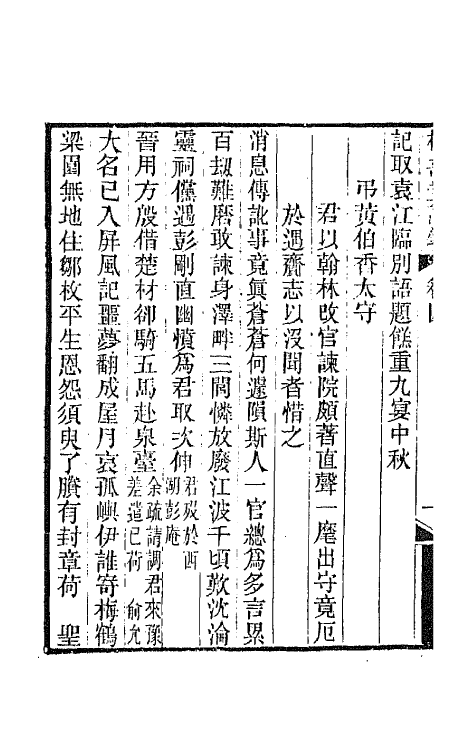 記取袁江臨別語題餻重九宴中秋
弔黃伯香太守
君以翰林改官諫院頗著直聲一麾出守竟厄
於遇齎志以沒聞者惜之
消息傳訛事竟眞蒼蒼何遽隕斯人一官總爲多言累
百劫難磨敢諫身澤畔三閭憐放廢江波千頃歎沈淪
靈祠儻遇彭剛直幽憤爲君取次伸君歿於西湖彭庵
晉用方殷借楚材卻騎五馬赴泉臺余疏請調君來豫差遣已荷　俞允
大名已入屏風記噩夢翻成屋月哀孤嶼伊誰寄梅鶴
梁園無地住鄒枚平生恩怨須臾了賸有封章荷　聖